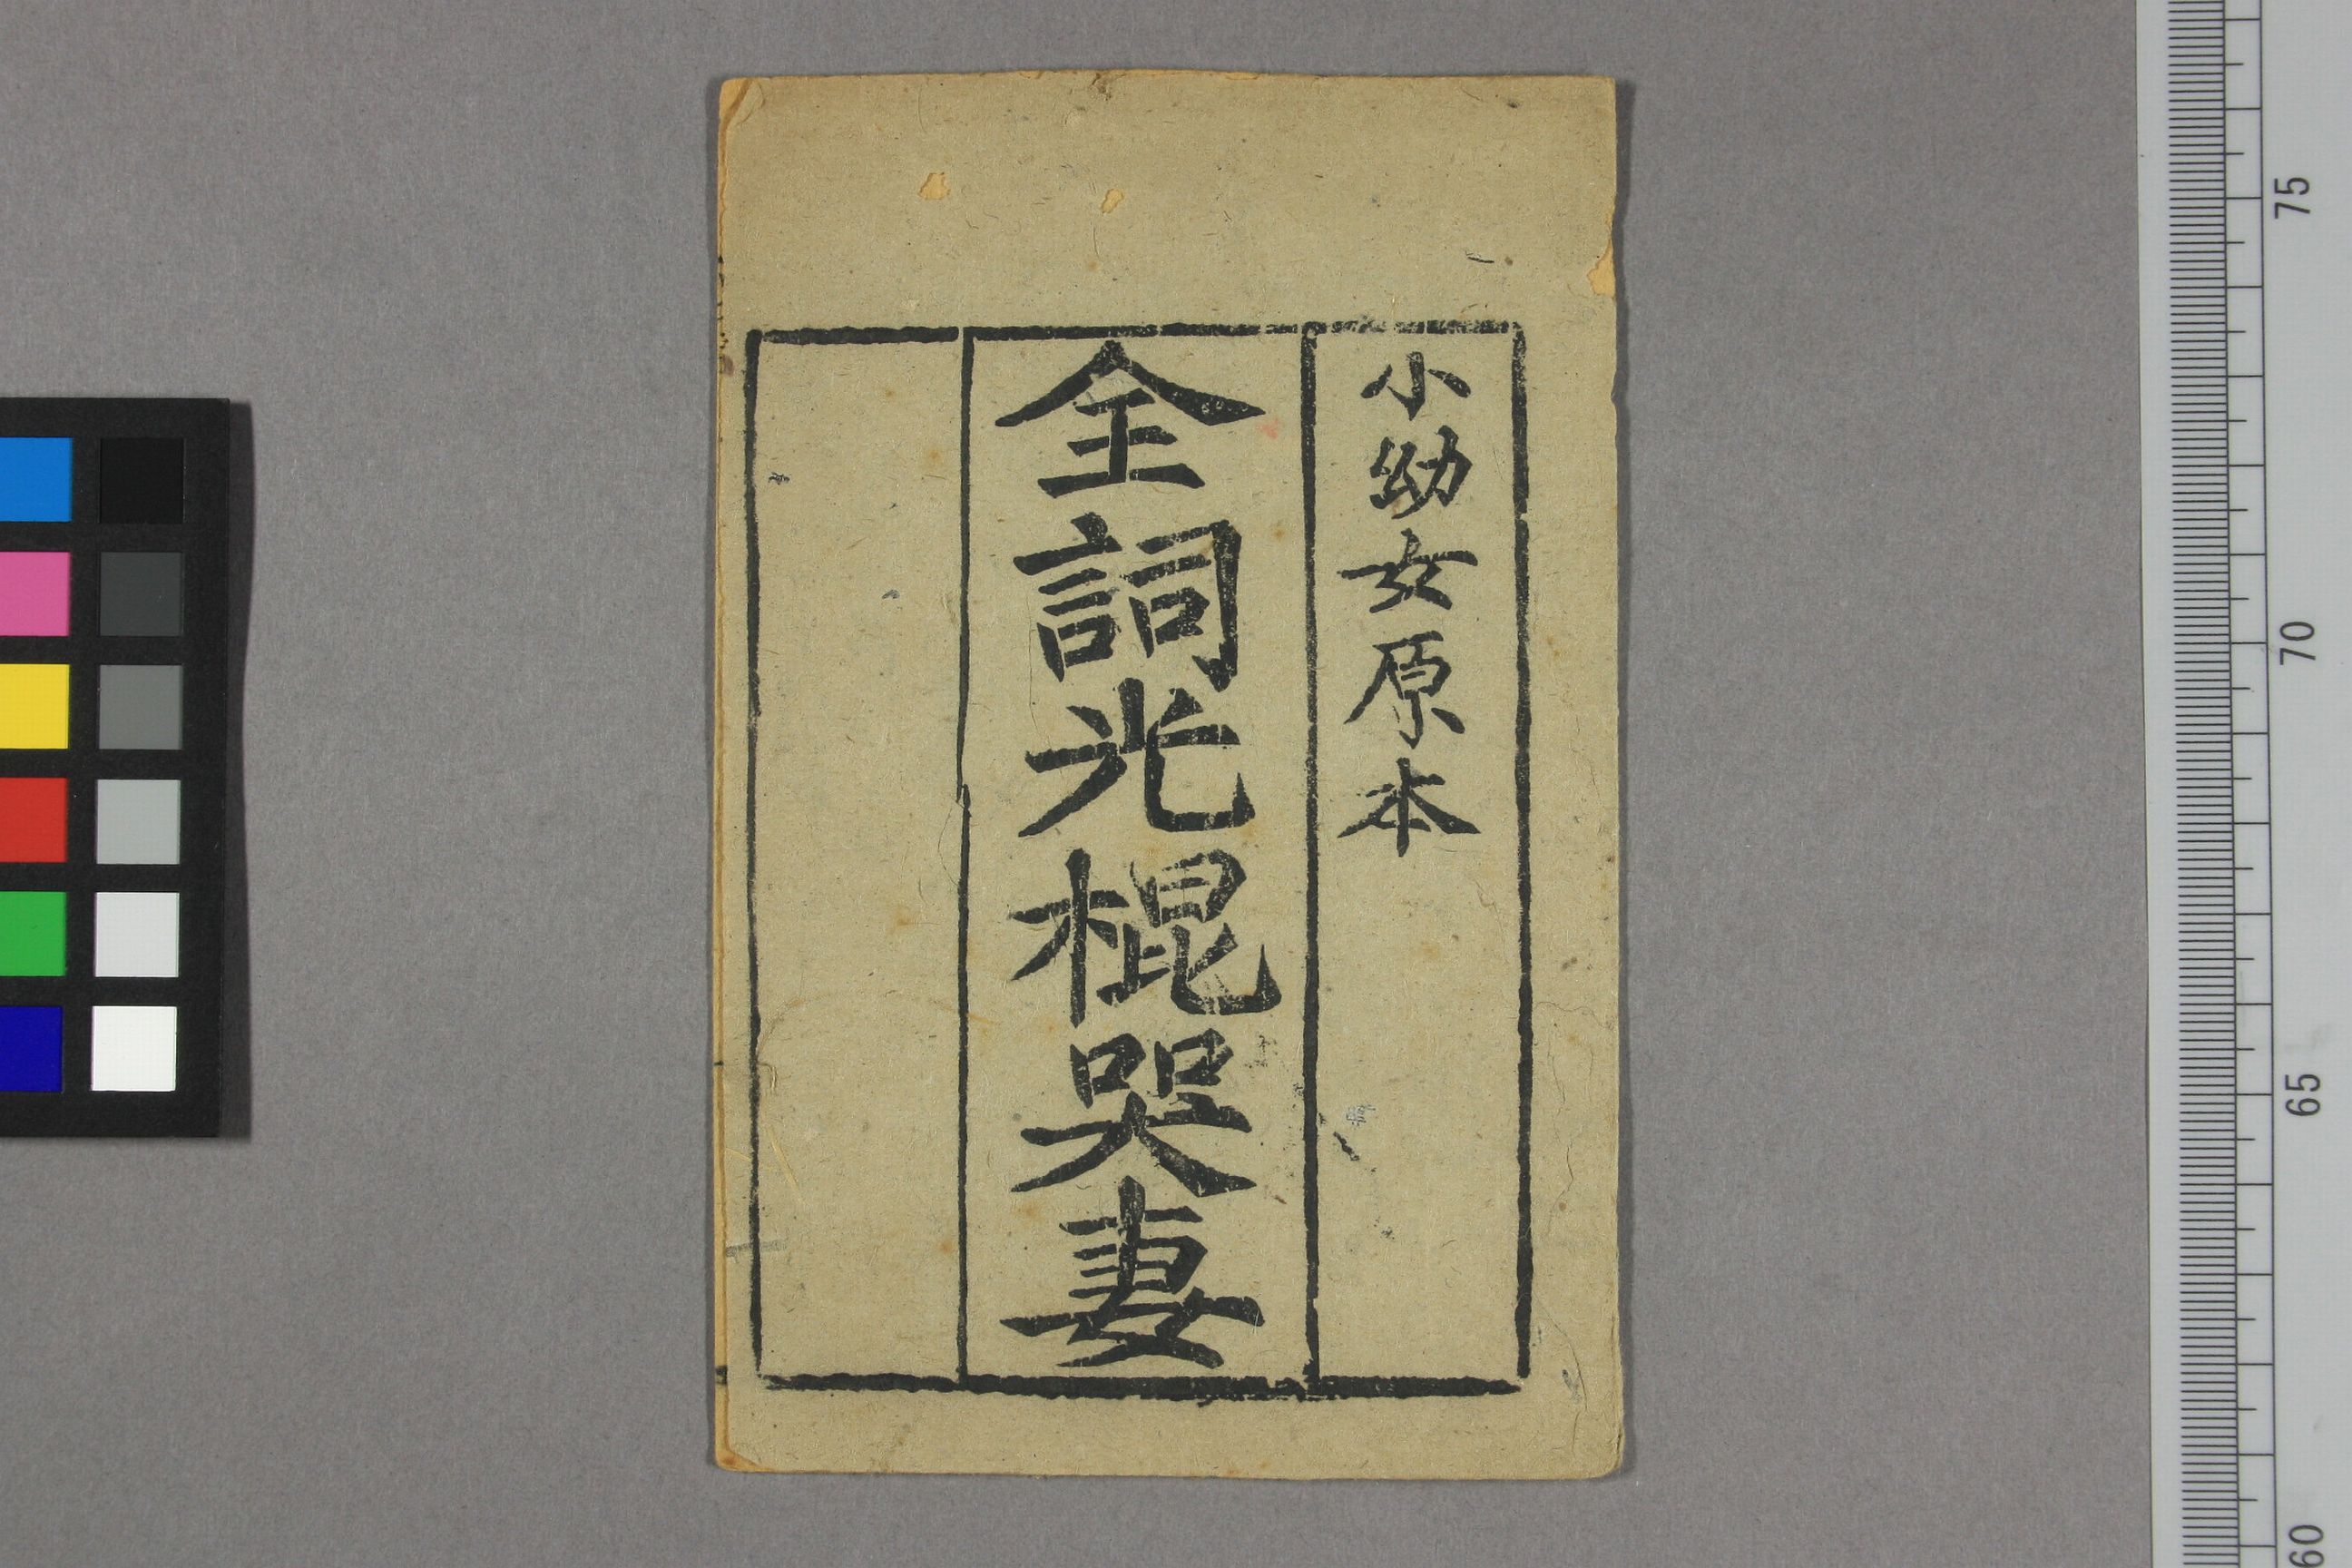 小幼女原本
全詞光棍哭妻
75
70
65
60